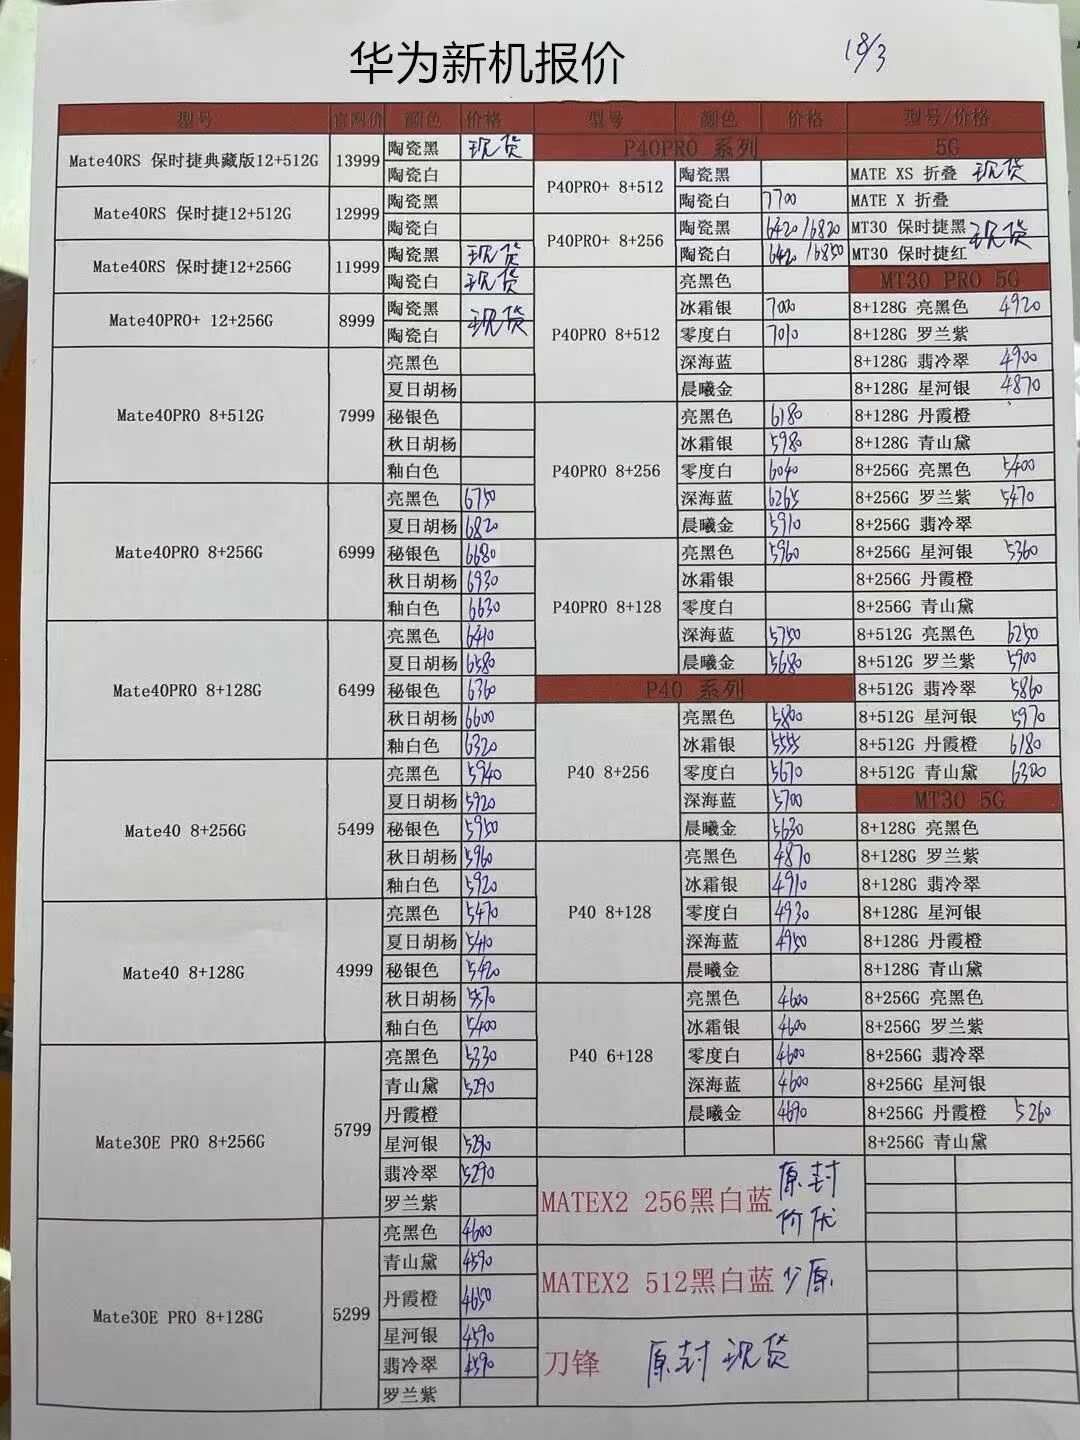 华为新机报价
18/3
型号 官网价 颜色 价格
Mate40RS 保时捷典藏版12+512G 13999
陶瓷黑 现货
陶瓷白
Mate40RS 保时捷12+512G 12999
陶瓷黑
陶瓷白
Mate40RS 保时捷12+256G 11999
陶瓷黑 现货
陶瓷白 现货
Mate40PRO+ 12+256G 8999
陶瓷黑 现货
陶瓷白
Mate40PRO 8+512G 7999
亮黑色
夏日胡杨
秘银色
秋日胡杨
釉白色
Mate40PRO 8+256G 6999
亮黑色 6750
夏日胡杨 6820
秘银色 6680
秋日胡杨 6930
釉白色 6630
Mate40PRO 8+128G 6499
亮黑色 6410
夏日胡杨 6580
秘银色 6360
秋日胡杨 6600
釉白色 6320
Mate40 8+256G 5499
亮黑色 5940
夏日胡杨 5920
秘银色 5950
秋日胡杨 5960
釉白色 5920
Mate40 8+128G 4999
亮黑色 5470
夏日胡杨 5410
秘银色 5420
秋日胡杨 5570
釉白色 5400
Mate30E PRO 8+256G 5799
亮黑色 5330
青山黛 5290
丹霞橙
星河银 5290
翡冷翠 5290
罗兰紫
Mate30E PRO 8+128G 5299
亮黑色 4600
青山黛 4590
丹霞橙 4650
星河银 4590
翡冷翠 4590
罗兰紫
型号 颜色 价格
P40PRO 系列
P40PRO+ 8+512
陶瓷黑
陶瓷白 7700
P40PRO+ 8+256
陶瓷黑 6420/6820
陶瓷白 6420/6850
P40PRO 8+512
亮黑色
冰霜银 7000
零度白 7010
深海蓝
晨曦金
P40PRO 8+256
亮黑色 6180
冰霜银 5980
零度白 6040
深海蓝 6265
晨曦金 5910
P40PRO 8+128
亮黑色 5960
冰霜银
零度白
深海蓝 5750
晨曦金 5680
P40 系列
P40 8+256
亮黑色 5800
冰霜银 5555
零度白 5670
深海蓝 5700
晨曦金 5630
P40 8+128
亮黑色 4870
冰霜银 4910
零度白 4930
深海蓝 4950
晨曦金
P40 6+128
亮黑色 4600
冰霜银 4600
零度白 4600
深海蓝 4600
晨曦金 4690
MATEX2 256黑白蓝 原封
价优
MATEX2 512黑白蓝 少原
刀锋 原封现货
型号/价格
5G
MATE XS 折叠 现货
MATE X 折叠
MT30 保时捷黑 现货
MT30 保时捷红
MT30 PRO 5G
8+128G 亮黑色 4920
8+128G 罗兰紫
8+128G 翡冷翠 4900
8+128G 星河银 4870
8+128G 丹霞橙
8+128G 青山黛
8+256G 亮黑色 5400
8+256G 罗兰紫 5470
8+256G 翡冷翠
8+256G 星河银 5360
8+256G 丹霞橙
8+256G 青山黛
8+512G 亮黑色 6250
8+512G 罗兰紫 5900
8+512G 翡冷翠 5860
8+512G 星河银 5970
8+512G 丹霞橙 6180
8+512G 青山黛 6300
MT30 5G
8+128G 亮黑色
8+128G 罗兰紫
8+128G 翡冷翠
8+128G 星河银
8+128G 丹霞橙
8+128G 青山黛
8+256G 亮黑色
8+256G 罗兰紫
8+256G 翡冷翠
8+256G 星河银
8+256G 丹霞橙 5260
8+256G 青山黛